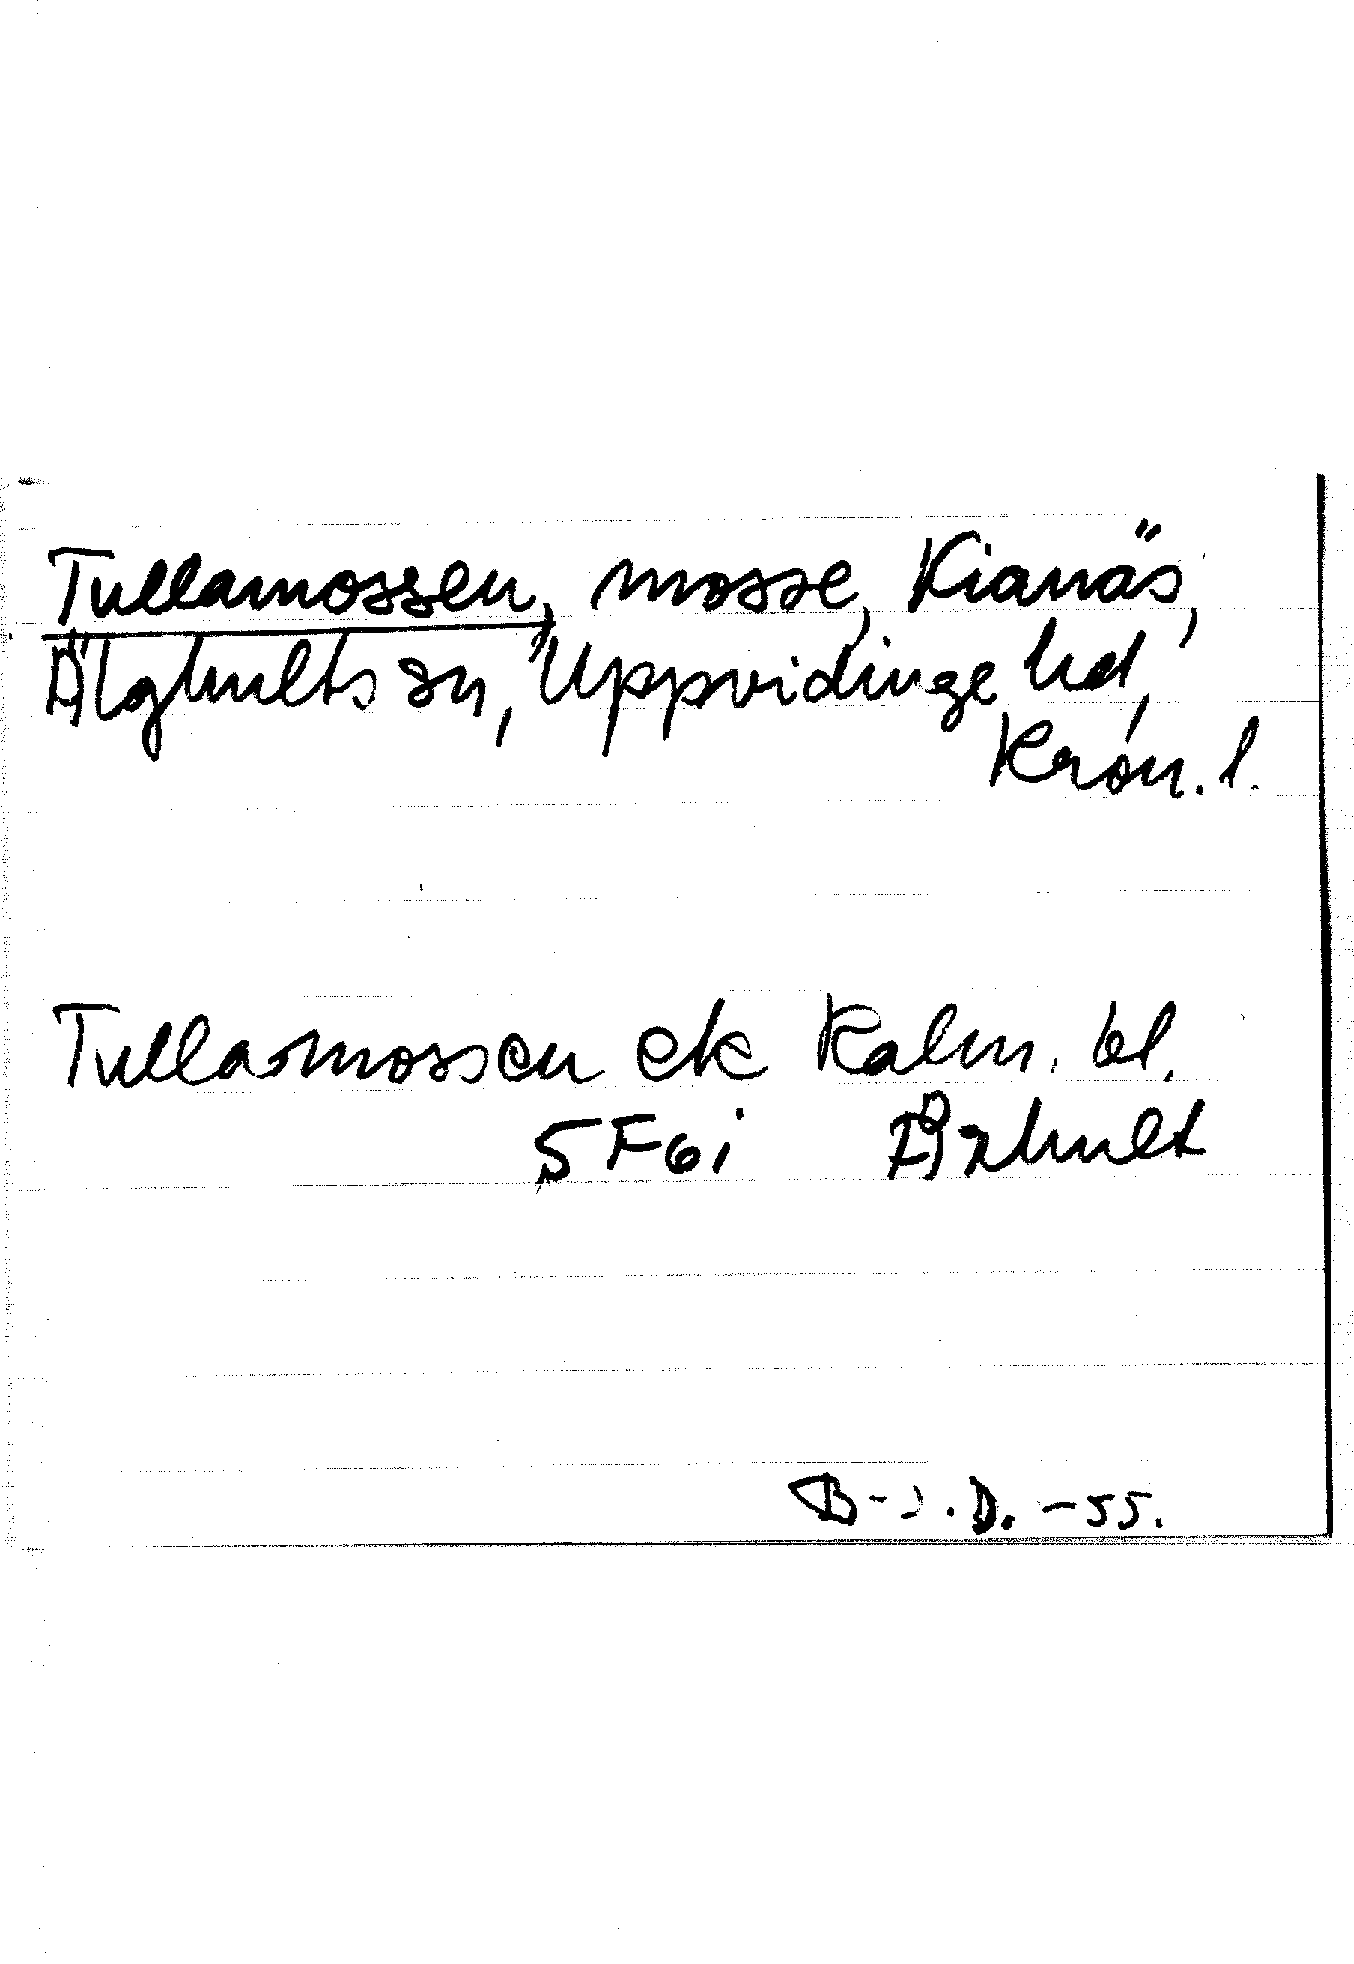 Tullamossen, mosse, Kianäs,
Älghults sn, Uppvidinge hd,
Kron. l.
Tullamossen ek Kalm. bl.
5F6i Åshult
B-J.D. -55.